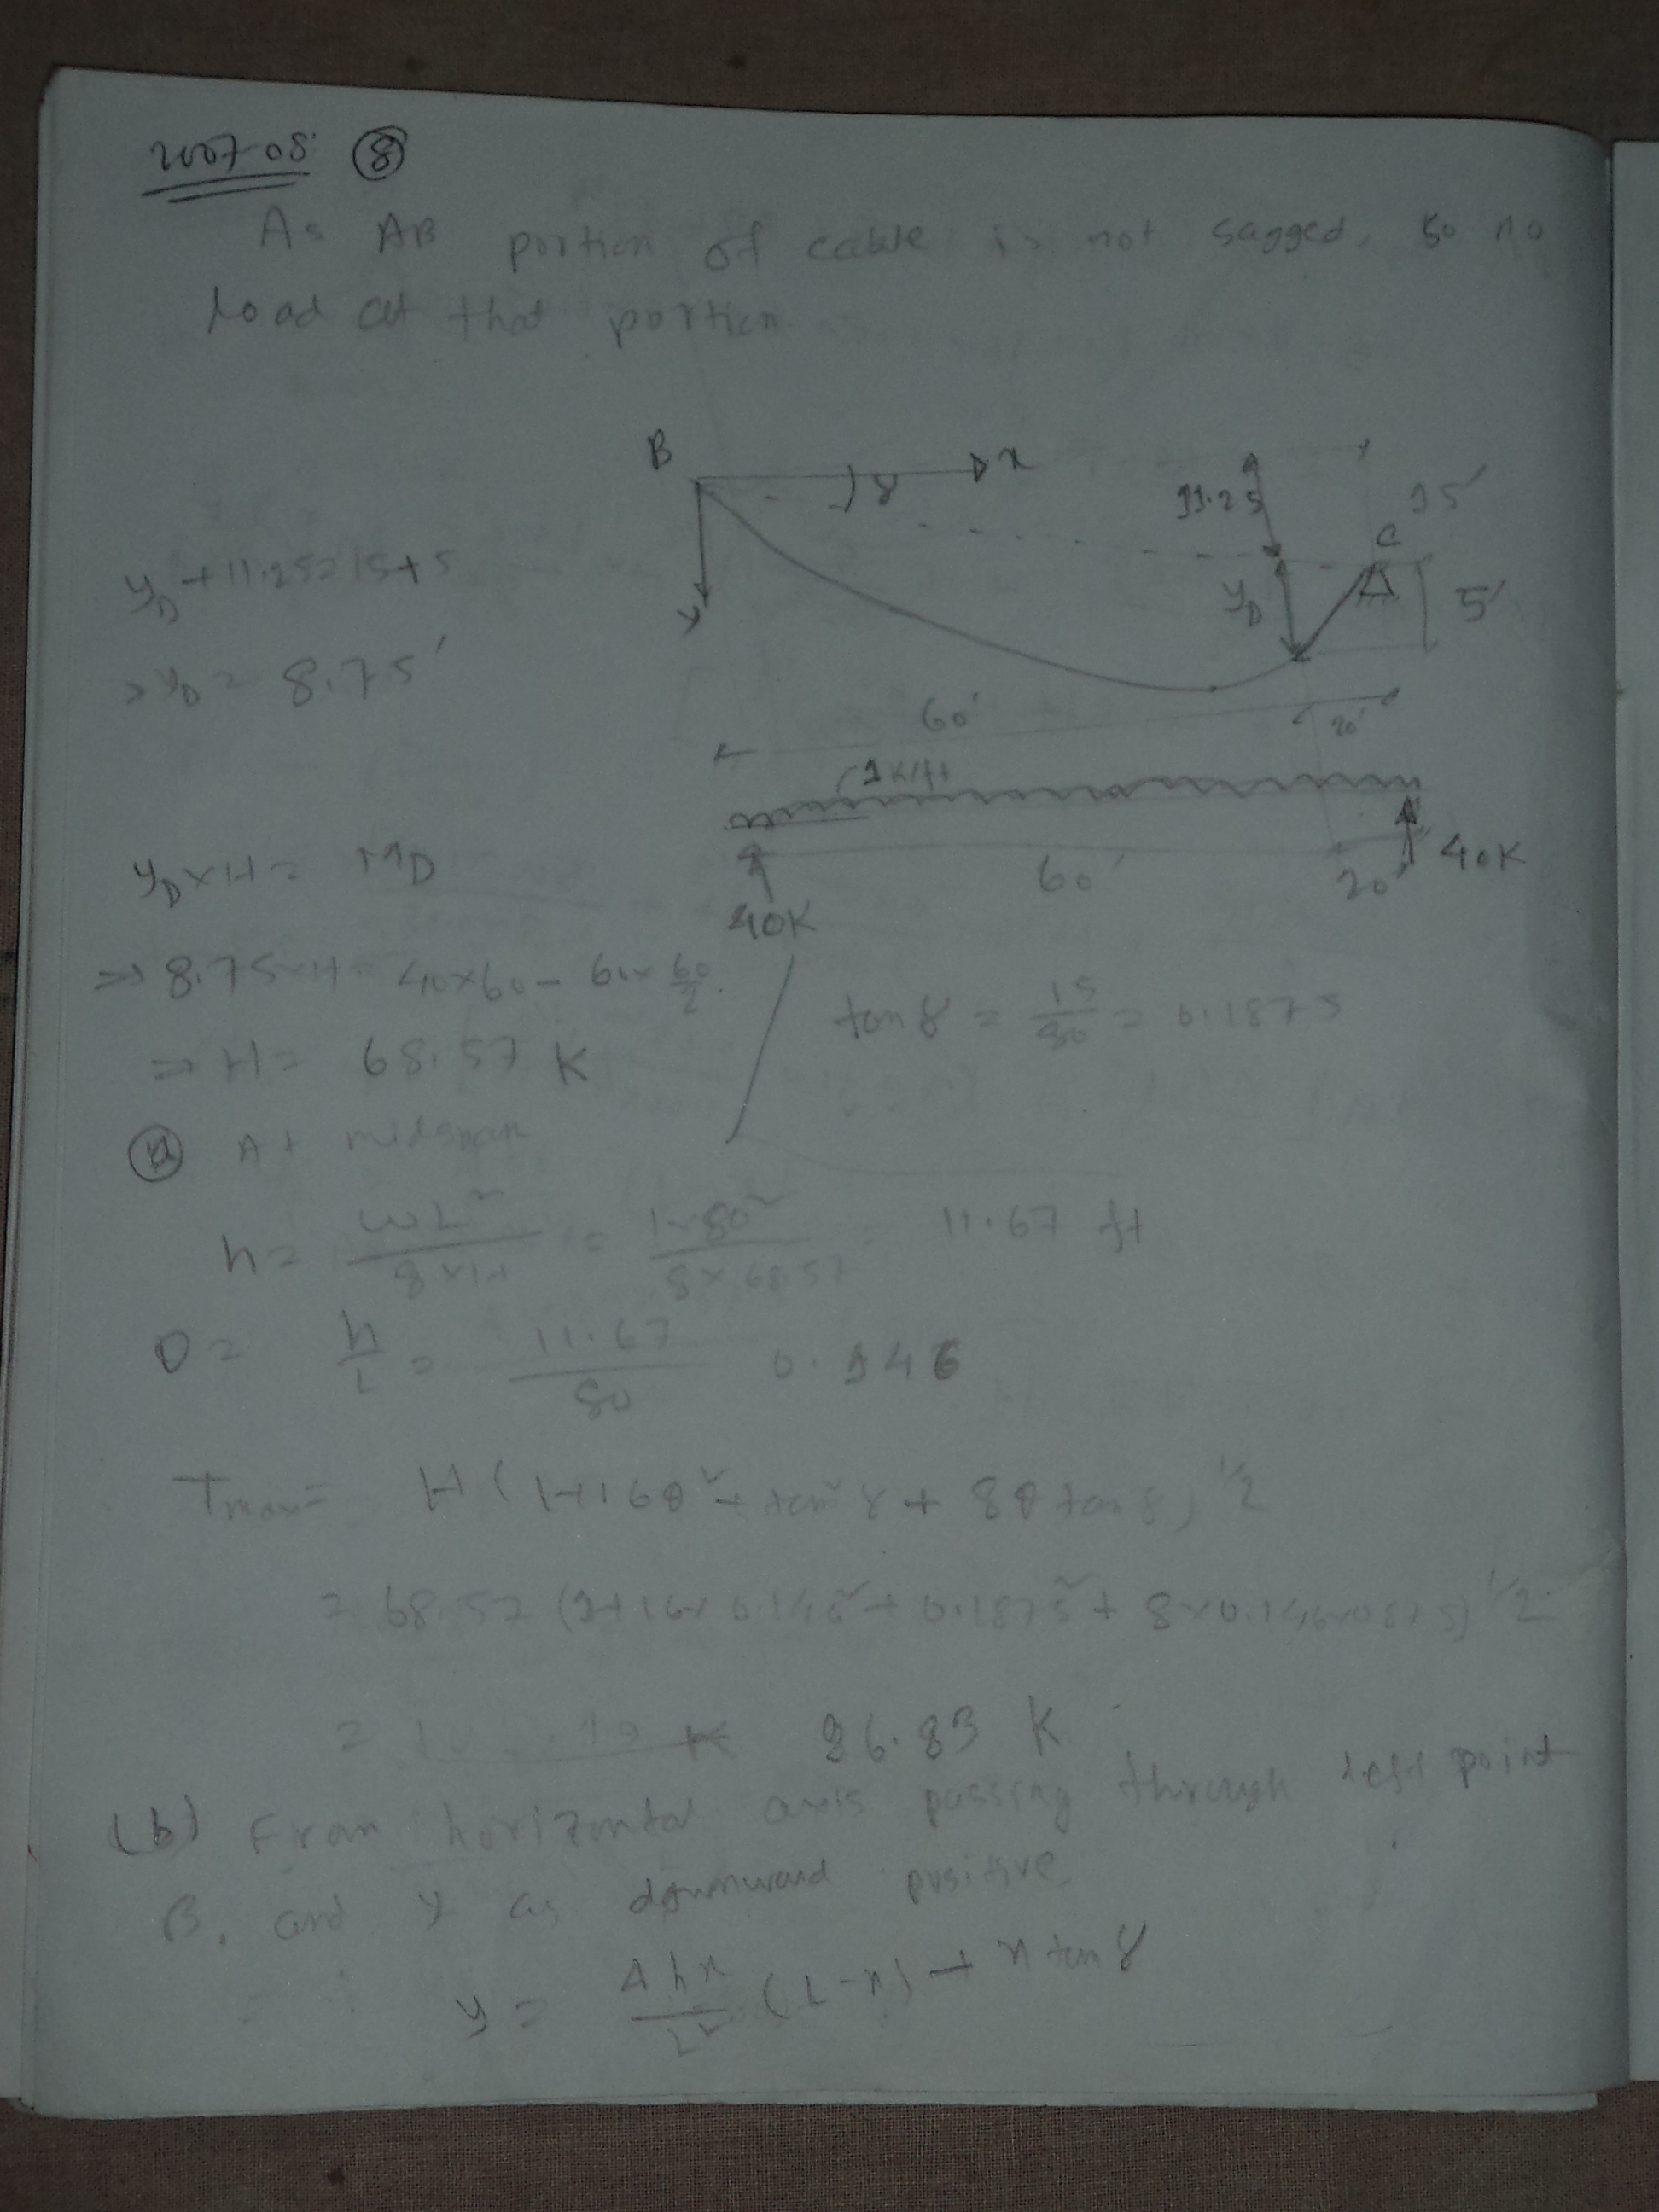 2007-08: ⑧
As AB portion of cable is not sagged, so no
load at that portion
B
x
γ
11.25
15'
C
y
y_D
5'
y_D + 11.25 = 15 + 5
⇒ y_D = 8.75'
60'
20'
1 k/ft
60'
20'
40K
40K
y_D × H = M_D
⇒ 8.75 × H = 40×60 - 60 × 60/2
⇒ H = 68.57 K
tan γ = 15/80 = 0.1875
ⓐ At midspan
h = wL²/8×H = 1×80²/8×68.57 = 11.67 ft
θ = h/L = 11.67/80 0.146
Tmax = H (1+16θ² + tan²γ + 8θ tan γ)^1/2
= 68.57 (1+16×0.146² + 0.1875² + 8×0.146×0.1875)^1/2
= 86.83 K
(b) From horizontal axis passing through left point
B, and y as downward positive.
y = 4hx/L² (L-x) + x tan γ